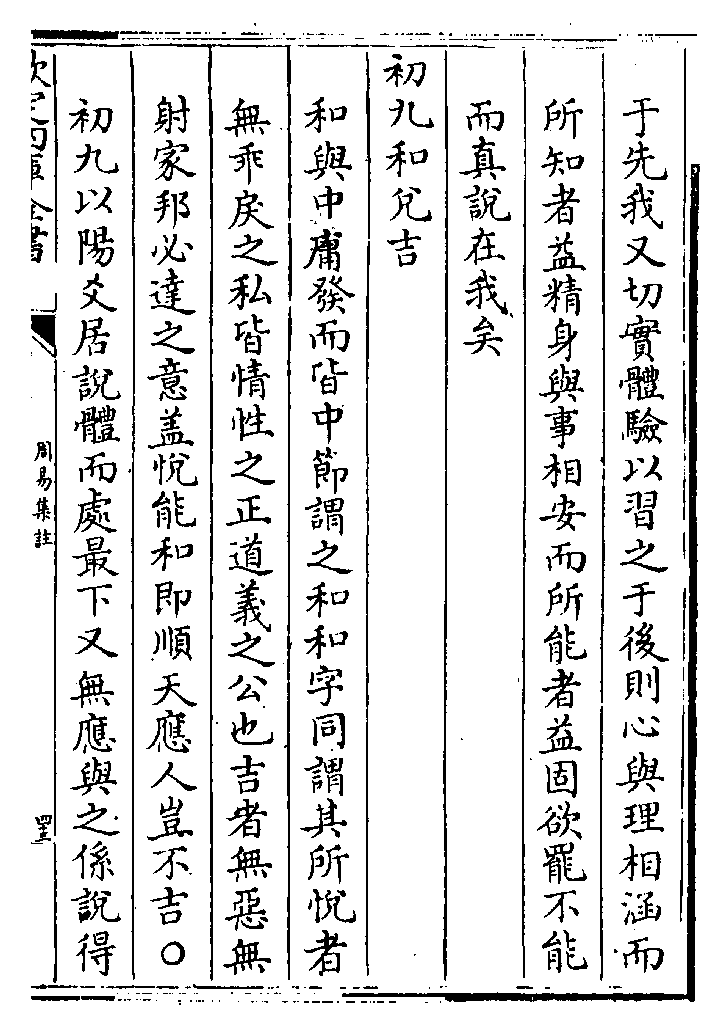 于先我又切實體驗以習之于後則心與理相涵而
所知者益精身與事相安而所能者益固欲罷不能
而真說在我矣
初九和兌吉
和與中庸發而皆中節謂之和和字同謂其所悅者
無乖戾之私皆情性之正道義之公也吉者無惡無
射家邦必達之意盖悅能和即順天應人豈不吉〇
初九以陽爻居說體而處最下又無應與之係說得
欽定四庫全書
周易集註